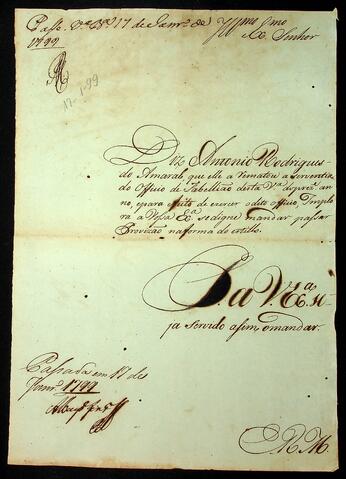 Passe. V.ª 17 de Janr.º de
1799
Illmo Exmo
Senhor
17-1-99
Diz Antonio Rodrigues
do Amaral, que elle arematou a serventia
do Officio de Tabellião desta V.ª do prez.e an-
no, epara effeito de exercer odito officio, Implo-
ra a Vossa Ex.ª sedigne mandar passar
Provizão naforma do estillo.
Pa V. Ex.ª se-
ja servido asim omandar.
Passada em 17 de
Janr.º 1799
E. R. M.